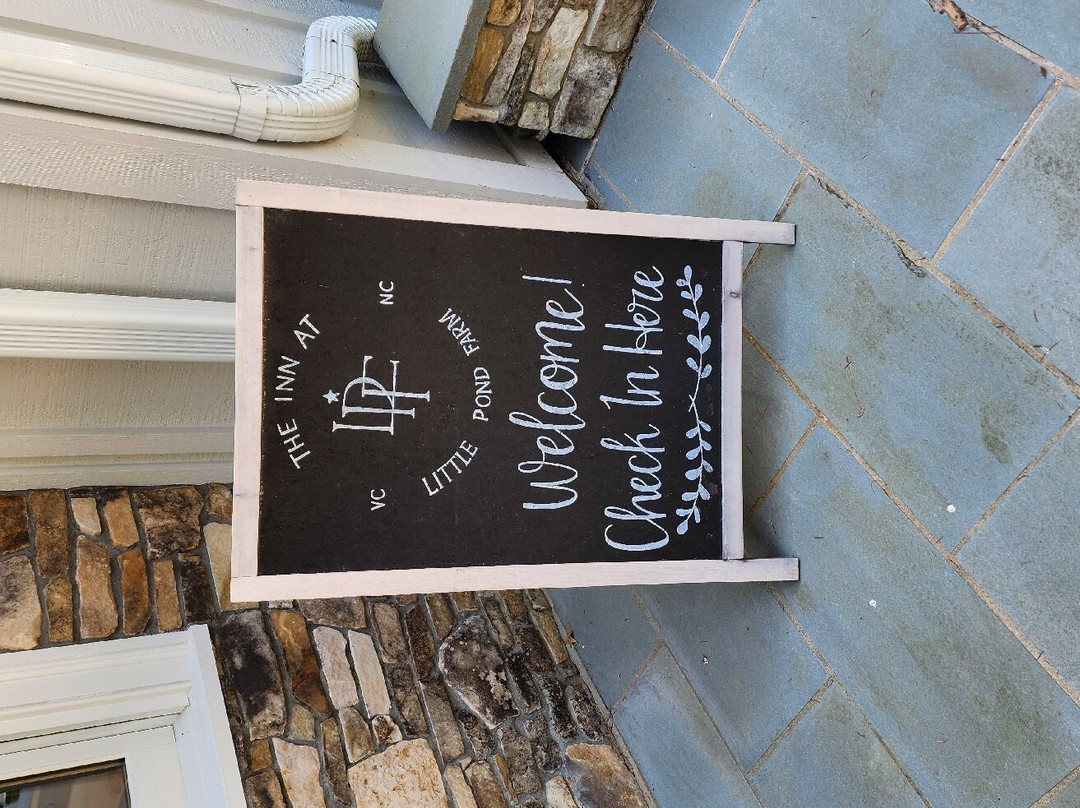 THE INN AT
VC LPF NC
LITTLE POND FARM
Welcome!
Check In Here